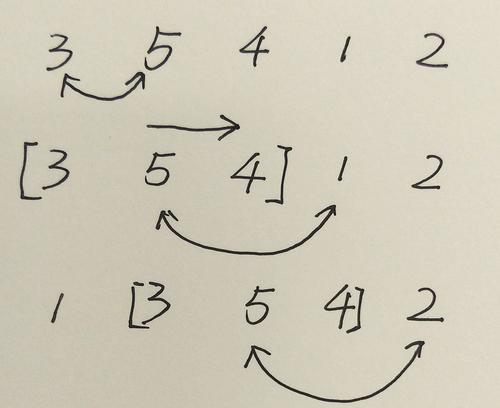 3 5 4 1 2
[3 5 4] 1 2
1 [3 5 4] 2